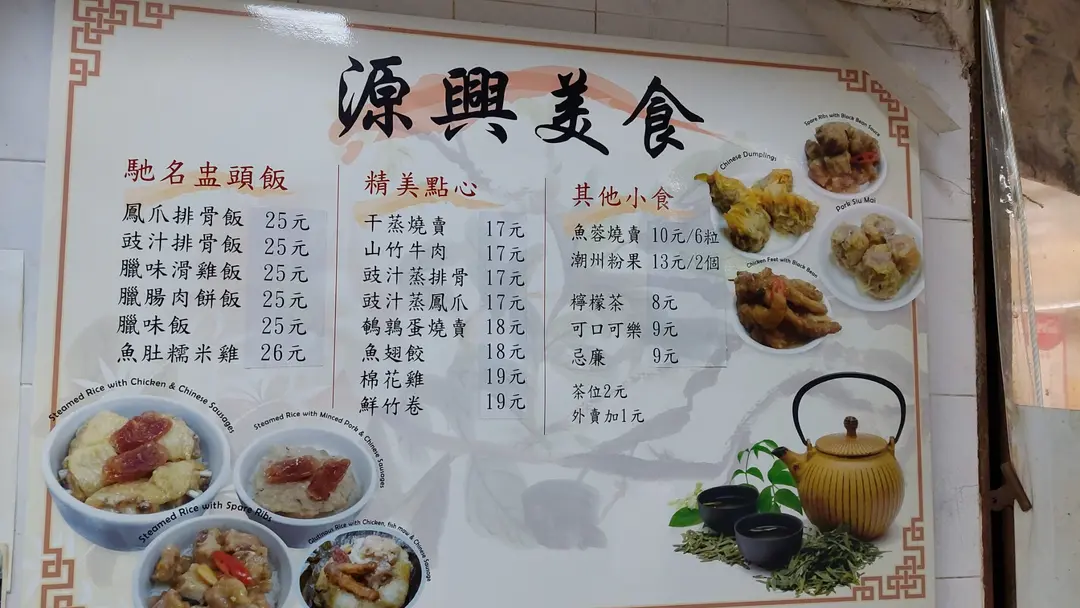 源興美食
馳名盅頭飯
鳳爪排骨飯 25元
豉汁排骨飯 25元
臘味滑雞飯 25元
臘腸肉餅飯 25元
臘味飯 25元
魚肚糯米雞 26元
精美點心
干蒸燒賣 17元
山竹牛肉 17元
豉汁蒸排骨 17元
豉汁蒸鳳爪 17元
鵪鶉蛋燒賣 18元
魚翅餃 18元
棉花雞 19元
鮮竹卷 19元
其他小食
魚蓉燒賣 10元/6粒
潮州粉果 13元/2個
檸檬茶 8元
可口可樂 9元
忌廉 9元
茶位2元
外賣加1元
Spare Ribs with Black Bean Sauce
Chinese Dumplings
Pork Siu Mai
Chicken Feet with Black Bean
Steamed Rice with Chicken & Chinese Sausages
Steamed Rice with Minced Pork & Chinese Sausages
Steamed Rice with Spare Ribs
Glutinous Rice with Chicken, fish maw & Chinese Sausage